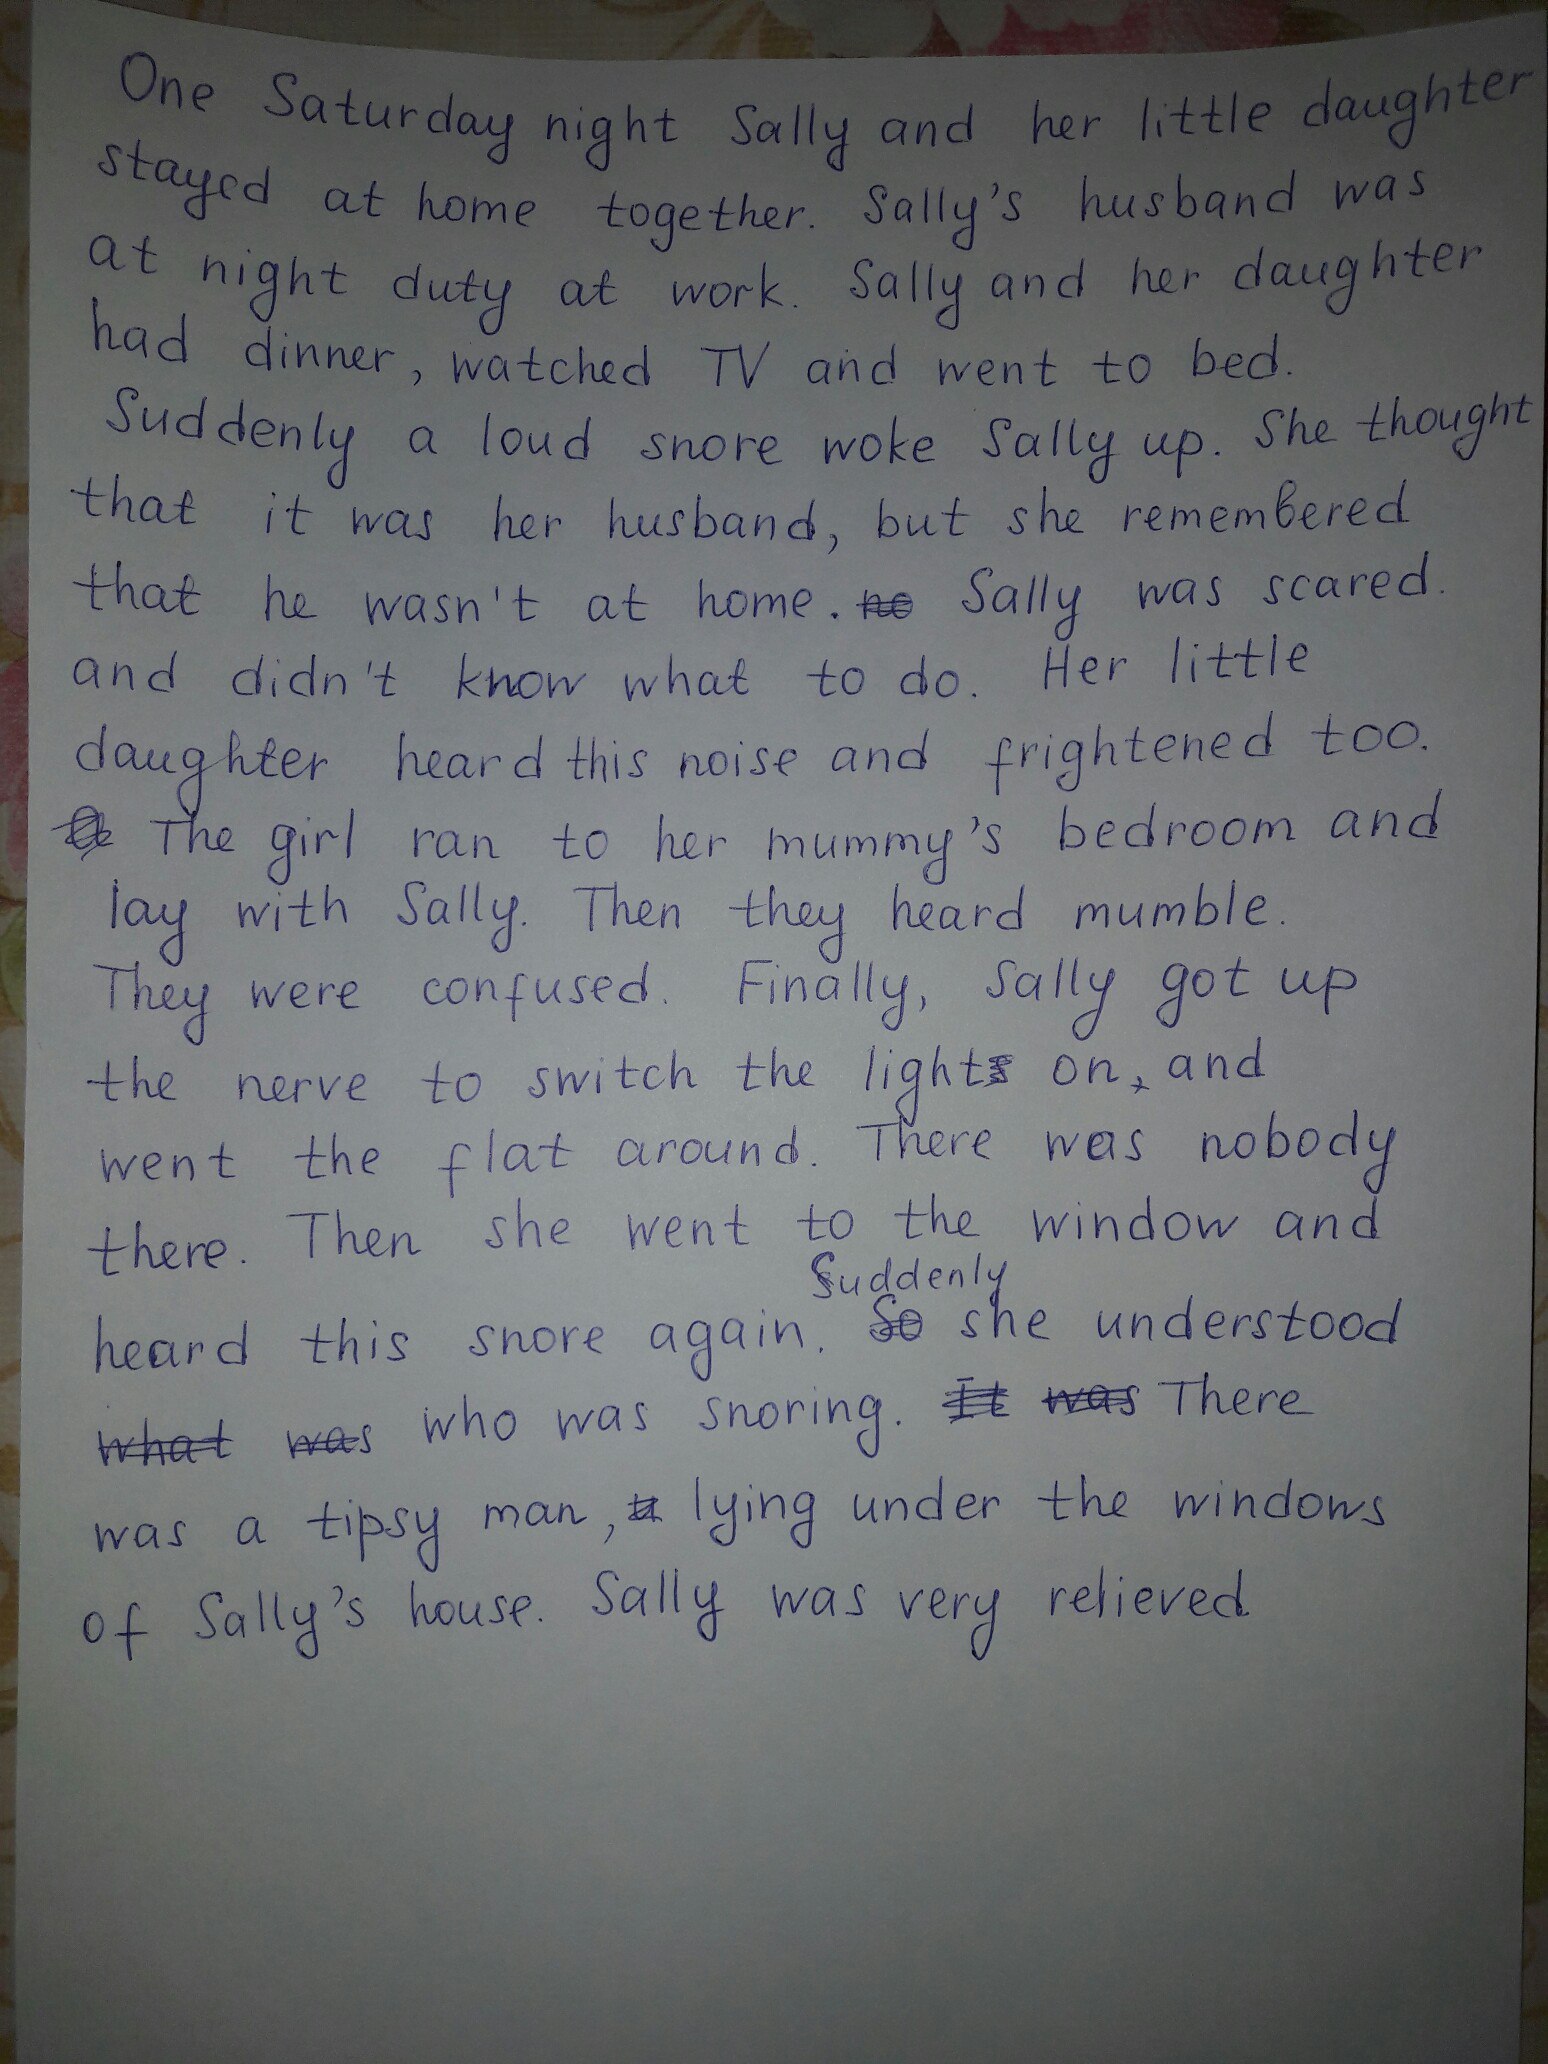 One Saturday night Sally and her little daughter
stayed at home together. Sally's husband was
at night duty at work. Sally and her daughter
had dinner, watched TV and went to bed.
Suddenly a loud snore woke Sally up. She thought
that it was her husband, but she remembered
that he wasn't at home. Sally was scared.
and didn't know what to do. Her little
daughter heard this noise and frightened too.
The girl ran to her mummy's bedroom and
lay with Sally. Then they heard mumble.
They were confused. Finally, Sally got up
the nerve to switch the light on, and
went the flat around. There was nobody
there. Then she went to the window and
Suddenly
heard this snore again. So she understood
what was who was snoring. It was There
was a tipsy man, lying under the windows
of Sally's house. Sally was very relieved